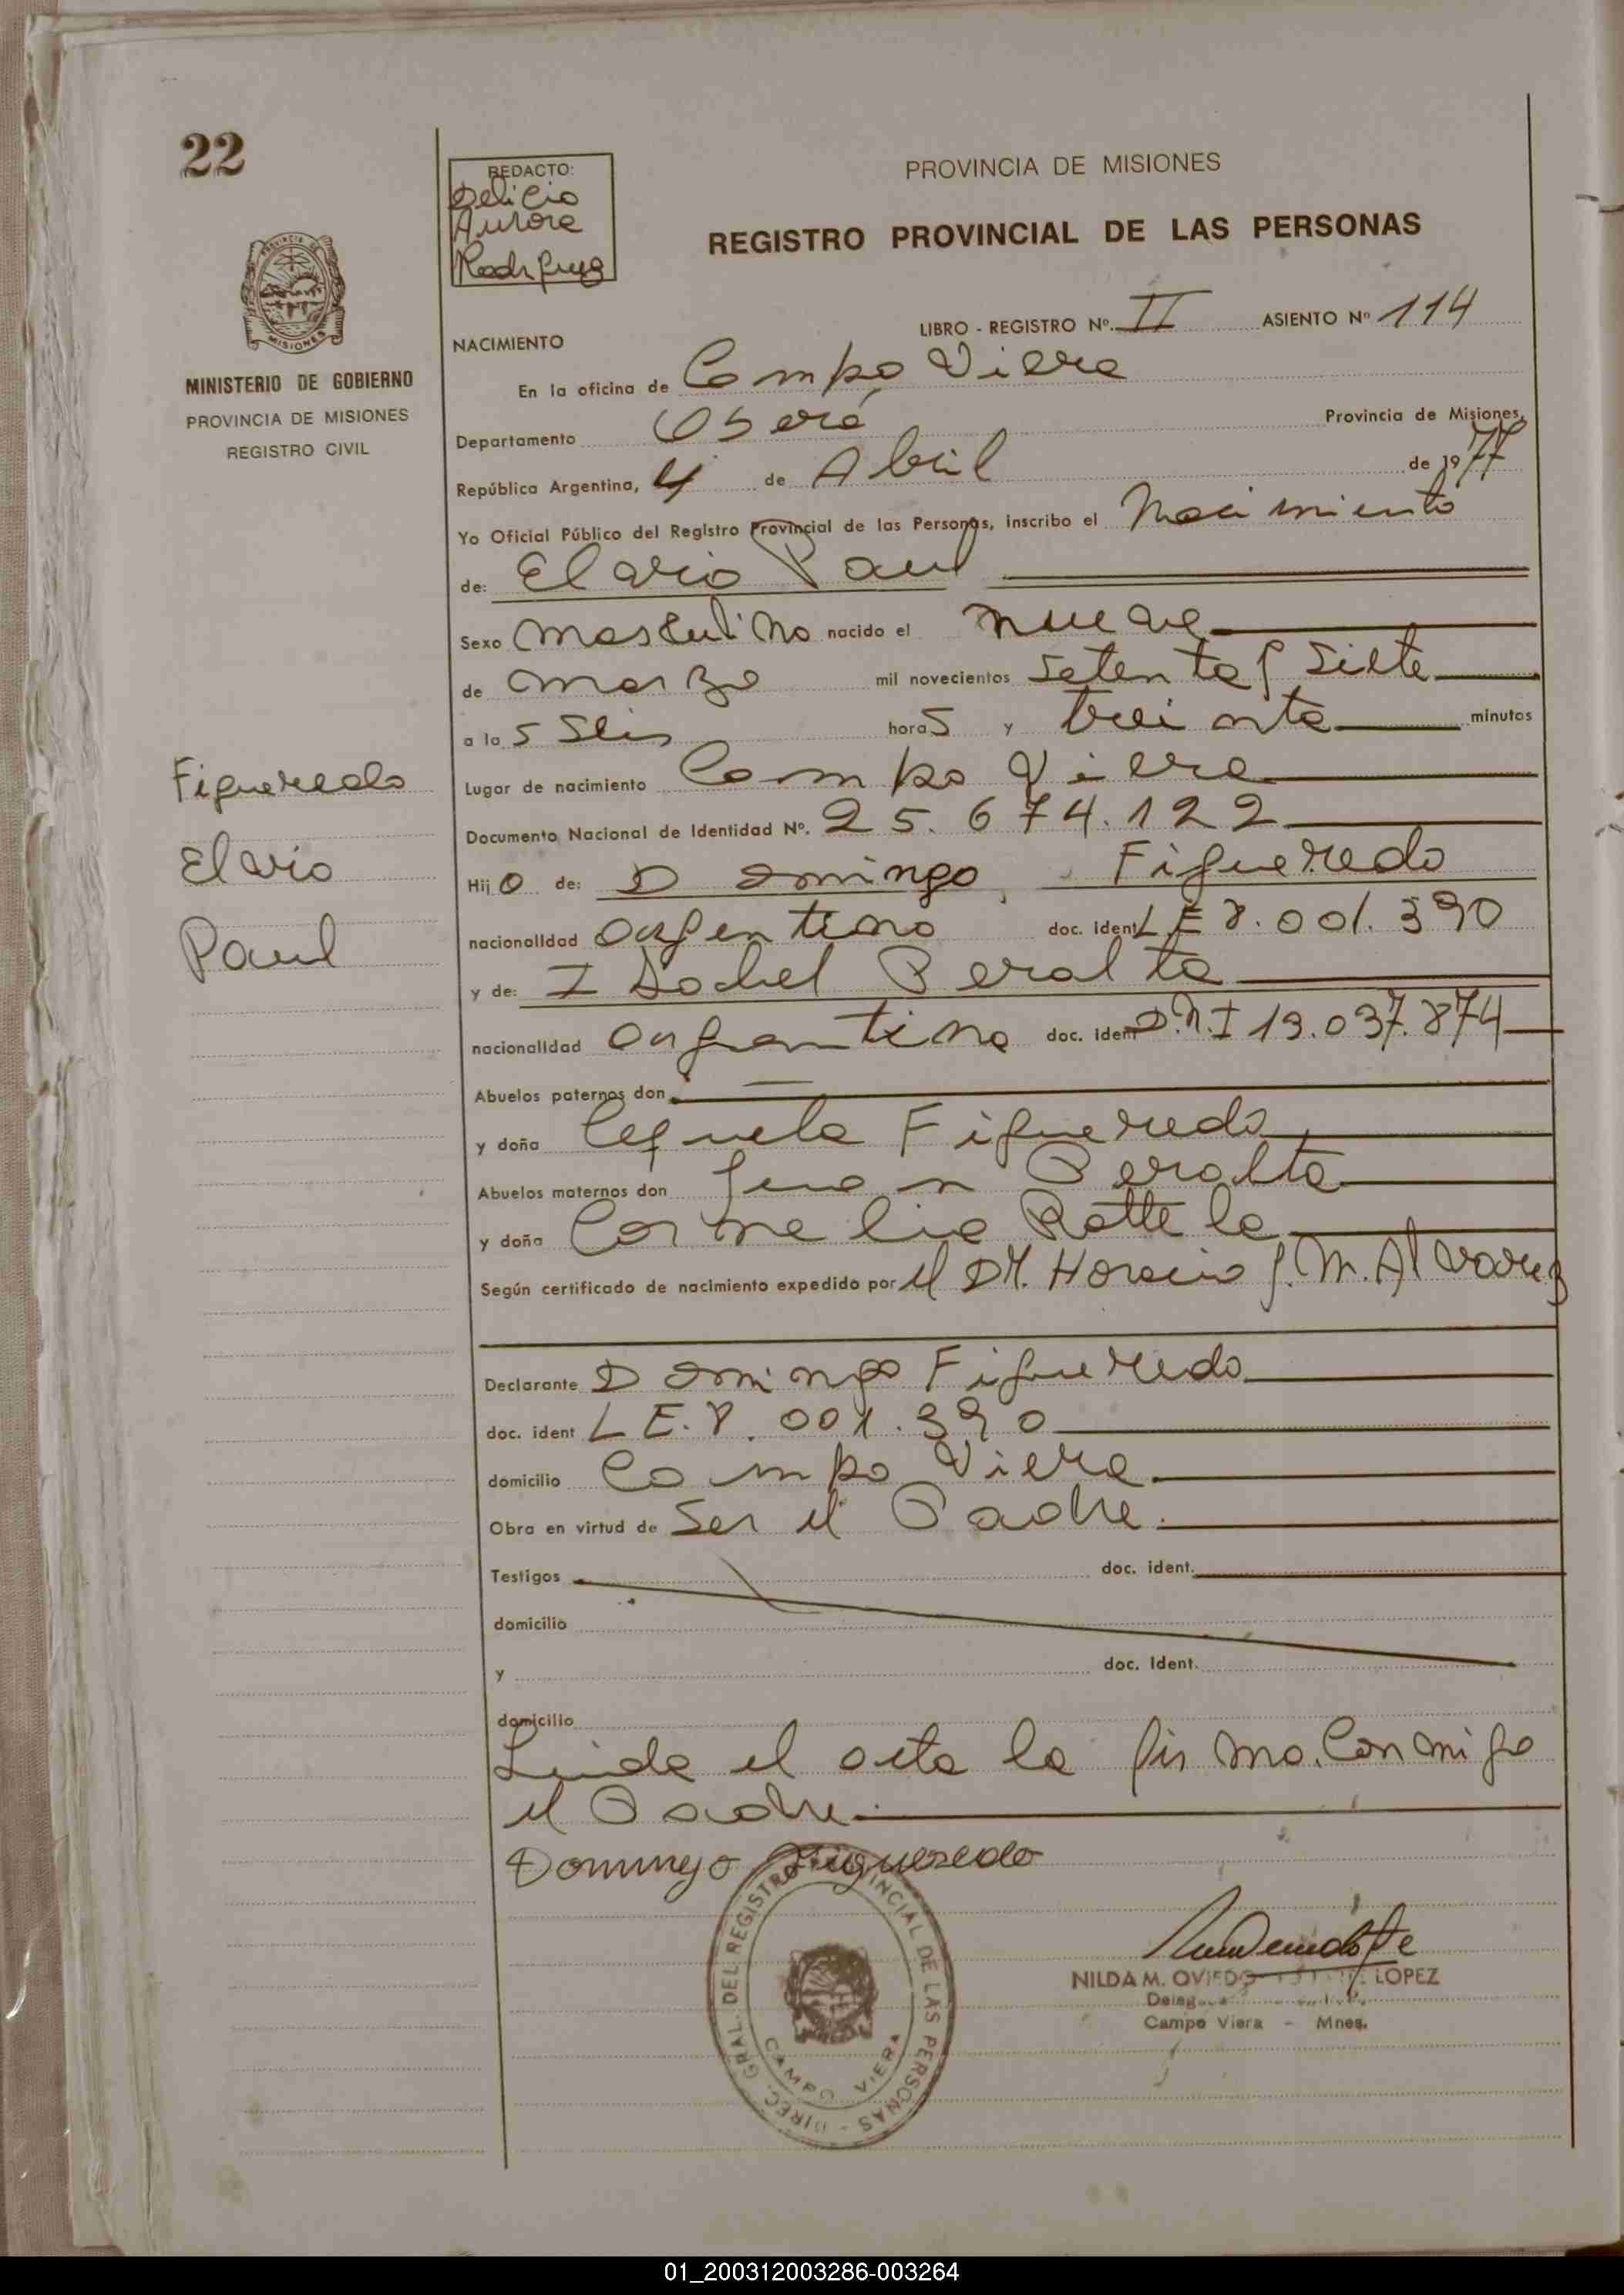 22
REDACTO:
Delicia
Aurora
Rodriguez
PROVINCIA DE MISIONES
REGISTRO PROVINCIAL DE LAS PERSONAS
MINISTERIO DE GOBIERNO
PROVINCIA DE MISIONES
REGISTRO CIVIL
LIBRO - REGISTRO Nº. II ASIENTO Nº 114
NACIMIENTO
En la oficina de Campo Viera
Departamento Oberá Provincia de Misiones,
República Argentina, 4 de Abril de 1977
Yo Oficial Público del Registro Provincial de las Personas, inscribo el Nacimiento
de: Elavio Paul
Sexo Masculino nacido el nueve
de Marzo mil novecientos setenta y siete
a las seis horas y treinta minutos
Lugar de nacimiento Campo Viera
Documento Nacional de Identidad Nº. 25.674.122
Hijo de: Domingo Figueredo
nacionalidad argentino doc. ident L E 8.001.390
y de: Isabel Peralta
nacionalidad argentina doc. ident D.N.I 13.037.874
Abuelos paternos don
y doña Figueredo
Abuelos maternos don Juan Peralta
y doña Cornelia Rottela
Según certificado de nacimiento expedido por el DR. Horacio J. M. Alvarez
Declarante Domingo Figueredo
doc. ident L E. 8. 001.390
domicilio Campo Viera
Obra en virtud de Ser el Padre.
Testigos doc. ident.
domicilio
y doc. Ident.
domicilio
Leida el acta la firma Conmigo
el Padre.
Domingo Figueredo
Figueredo
Elavio
Paul
DIREC. GRAL. DEL REGISTRO PROVINCIAL DE LAS PERSONAS -
CAMPO VIERA
NILDA M. OVIEDO LOPEZ
Campo Viera - Mnes.
01_200312003286-003264